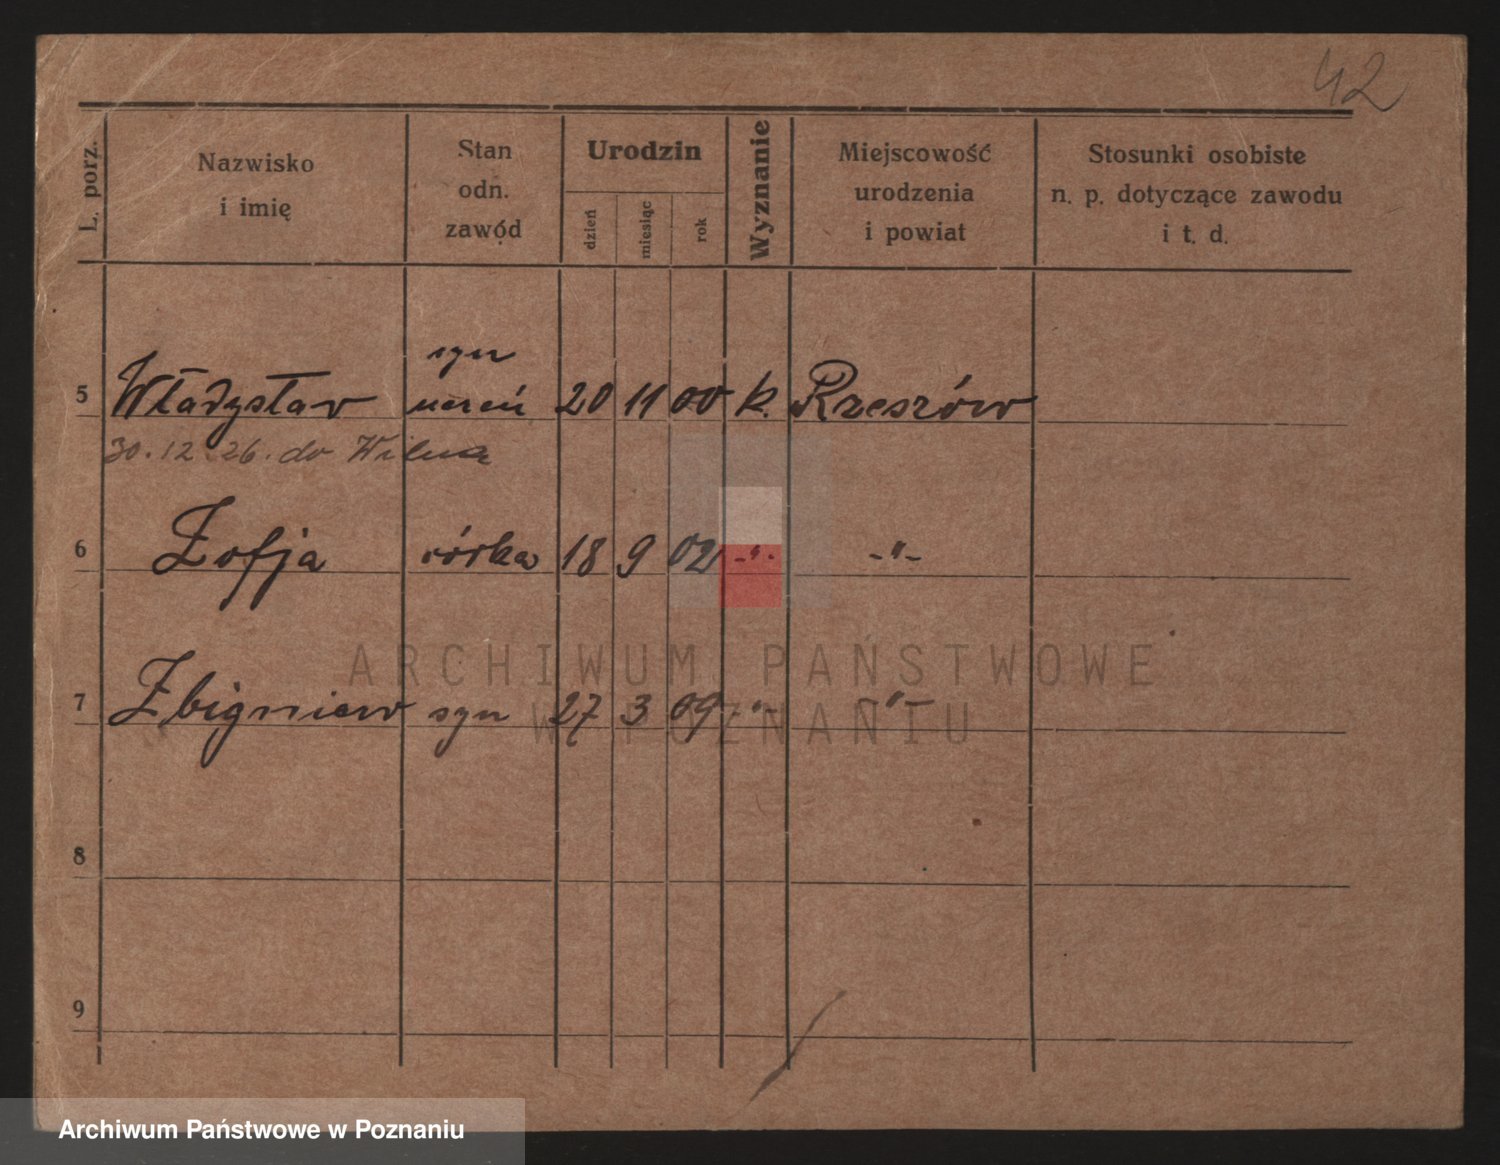 42
L. porz.
Nazwisko
i imię
Stan
odn.
zawód
Urodzin
dzień
miesiąc
rok
Wyznanie
Miejscowość
urodzenia
i powiat
Stosunki osobiste
n. p. dotyczące zawodu
i t. d.
syn
5 Władysław uczeń 20 11 00 k. Rzeszów
30.12.26. do Wilna
6 Zofja córka 18 9 02 -"- -"-
7 Zbigniew syn 27 3 09 -"- -"-
8
9
ARCHIWUM PAŃSTWOWE
W POZNANIU
Archiwum Państwowe w Poznaniu